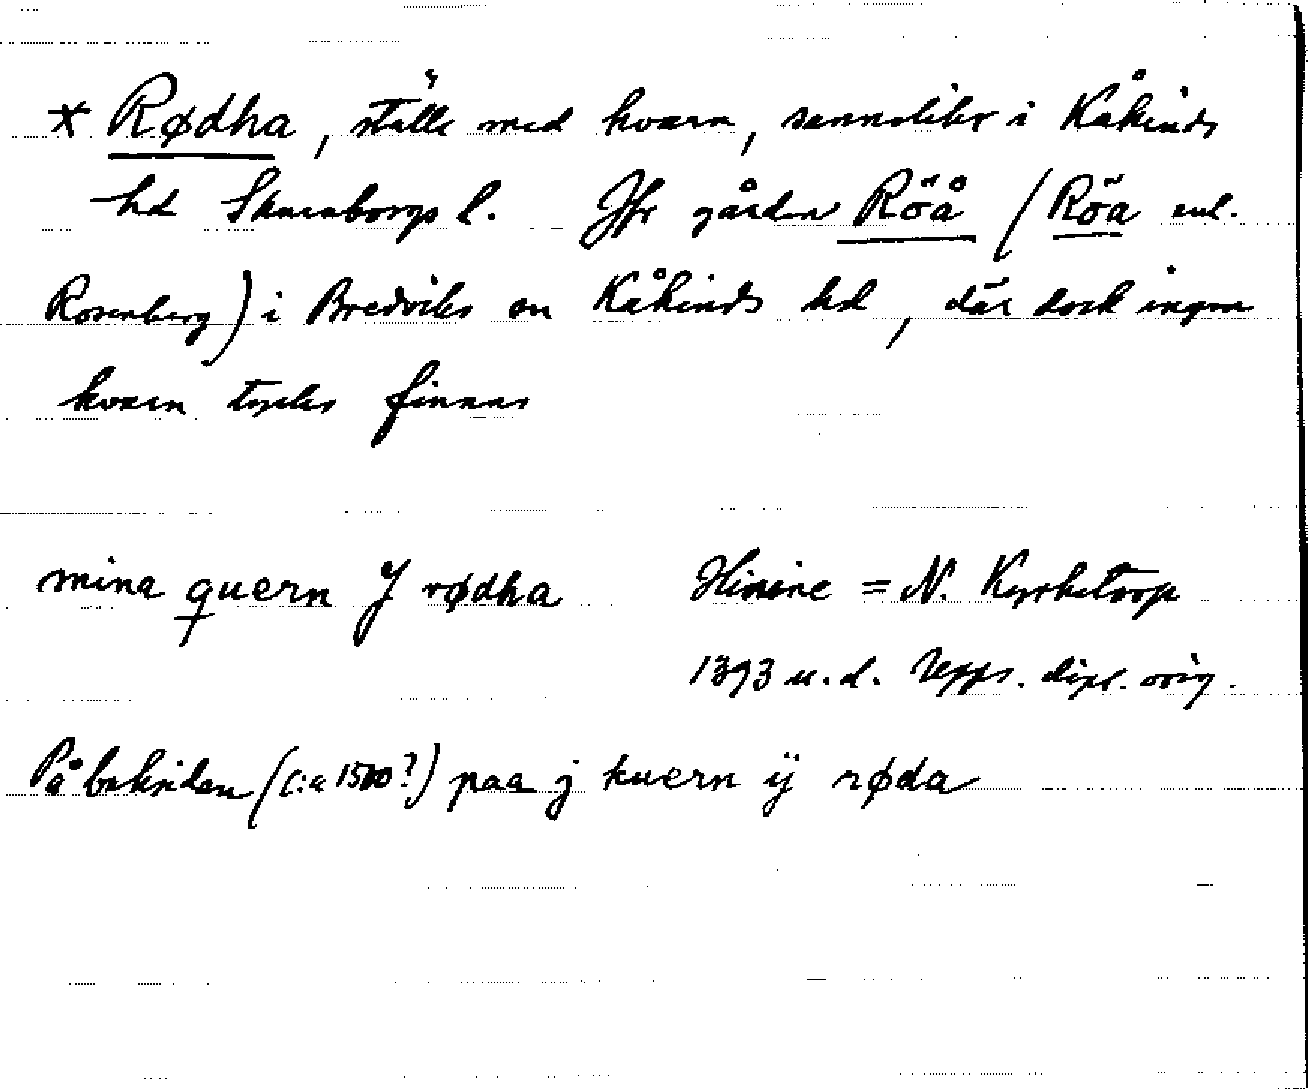 * Rødha, ställe med kvarn, sannolikt i Kåkinds
hd Skaraborgs l. Jfr gården Röå (Röa enl.
Rosenberg) i Bredviks sn Kåkinds hd, där dock ingen
kvarn tycks finnas
mina quern J rødha Hinine = N. Kyrketorp
1393 u.d. Upps. dipl. orig.
På baksidan (c:a 1500?) paa j kuern ÿ røda